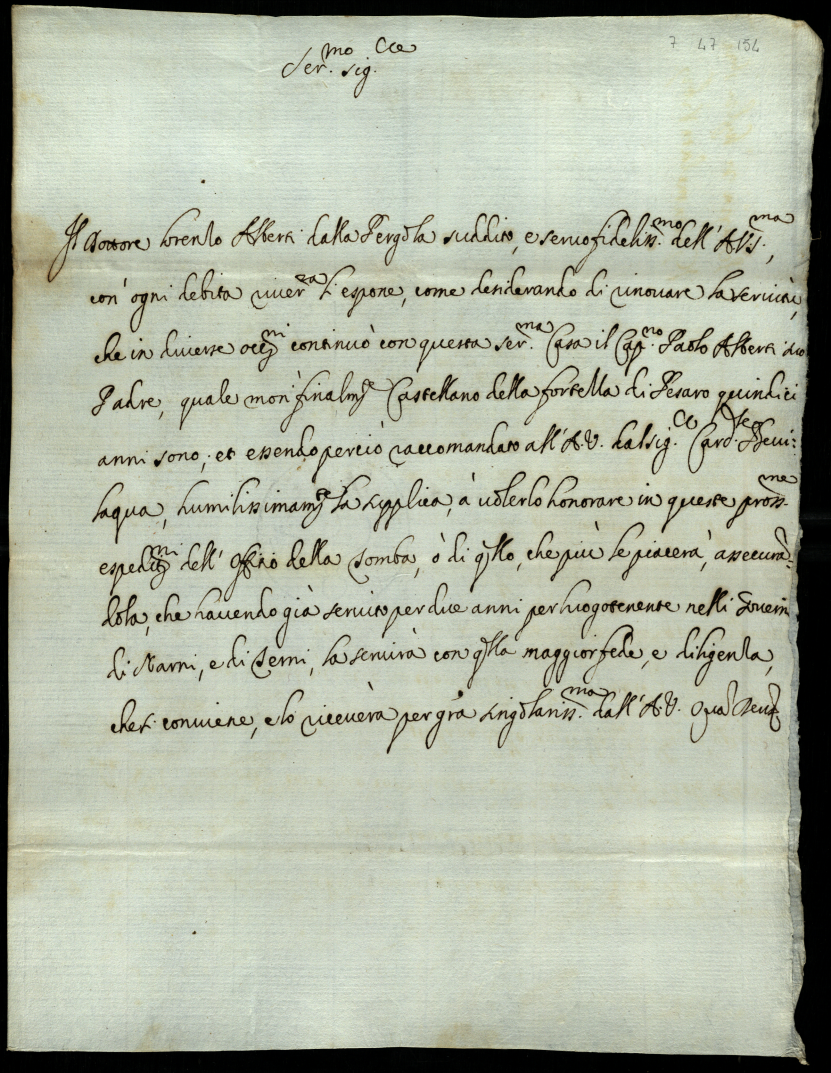 7 47 154
Ser.mo sig.re
Il Dottore Lorenzo Alberti dalla Pergola suddito, e servo fideliss.mo dell' A.V.S.ma,
con ogni debita river.za li espone, come desiderando di rinovare la servitù,
che in diverse occ.ni continuò con questa Ser.ma Casa il Cap.no Paolo Alberti suo
Padre, quale morì finalm.te Castellano della fortezza di Pesaro quindici
anni sono; et essendo perciò raccomandato all' A.V. dal sig.r Card.
laqua, humilissimam.te la supplica, à volerlo honorare in queste pross.me
espedit.ni dell' Offitio della Tomba, ò di q.llo, che più le piacerà, assecurā-
dola, che havendo già servito per due anni per luogotenente nelli Governi
di Narni, e di Terni, la servirà con q.lla maggior fede, e diligenza,
che si conviene, e lo riceverà per grā singolariss.ma dall' A.V. Quā Deus